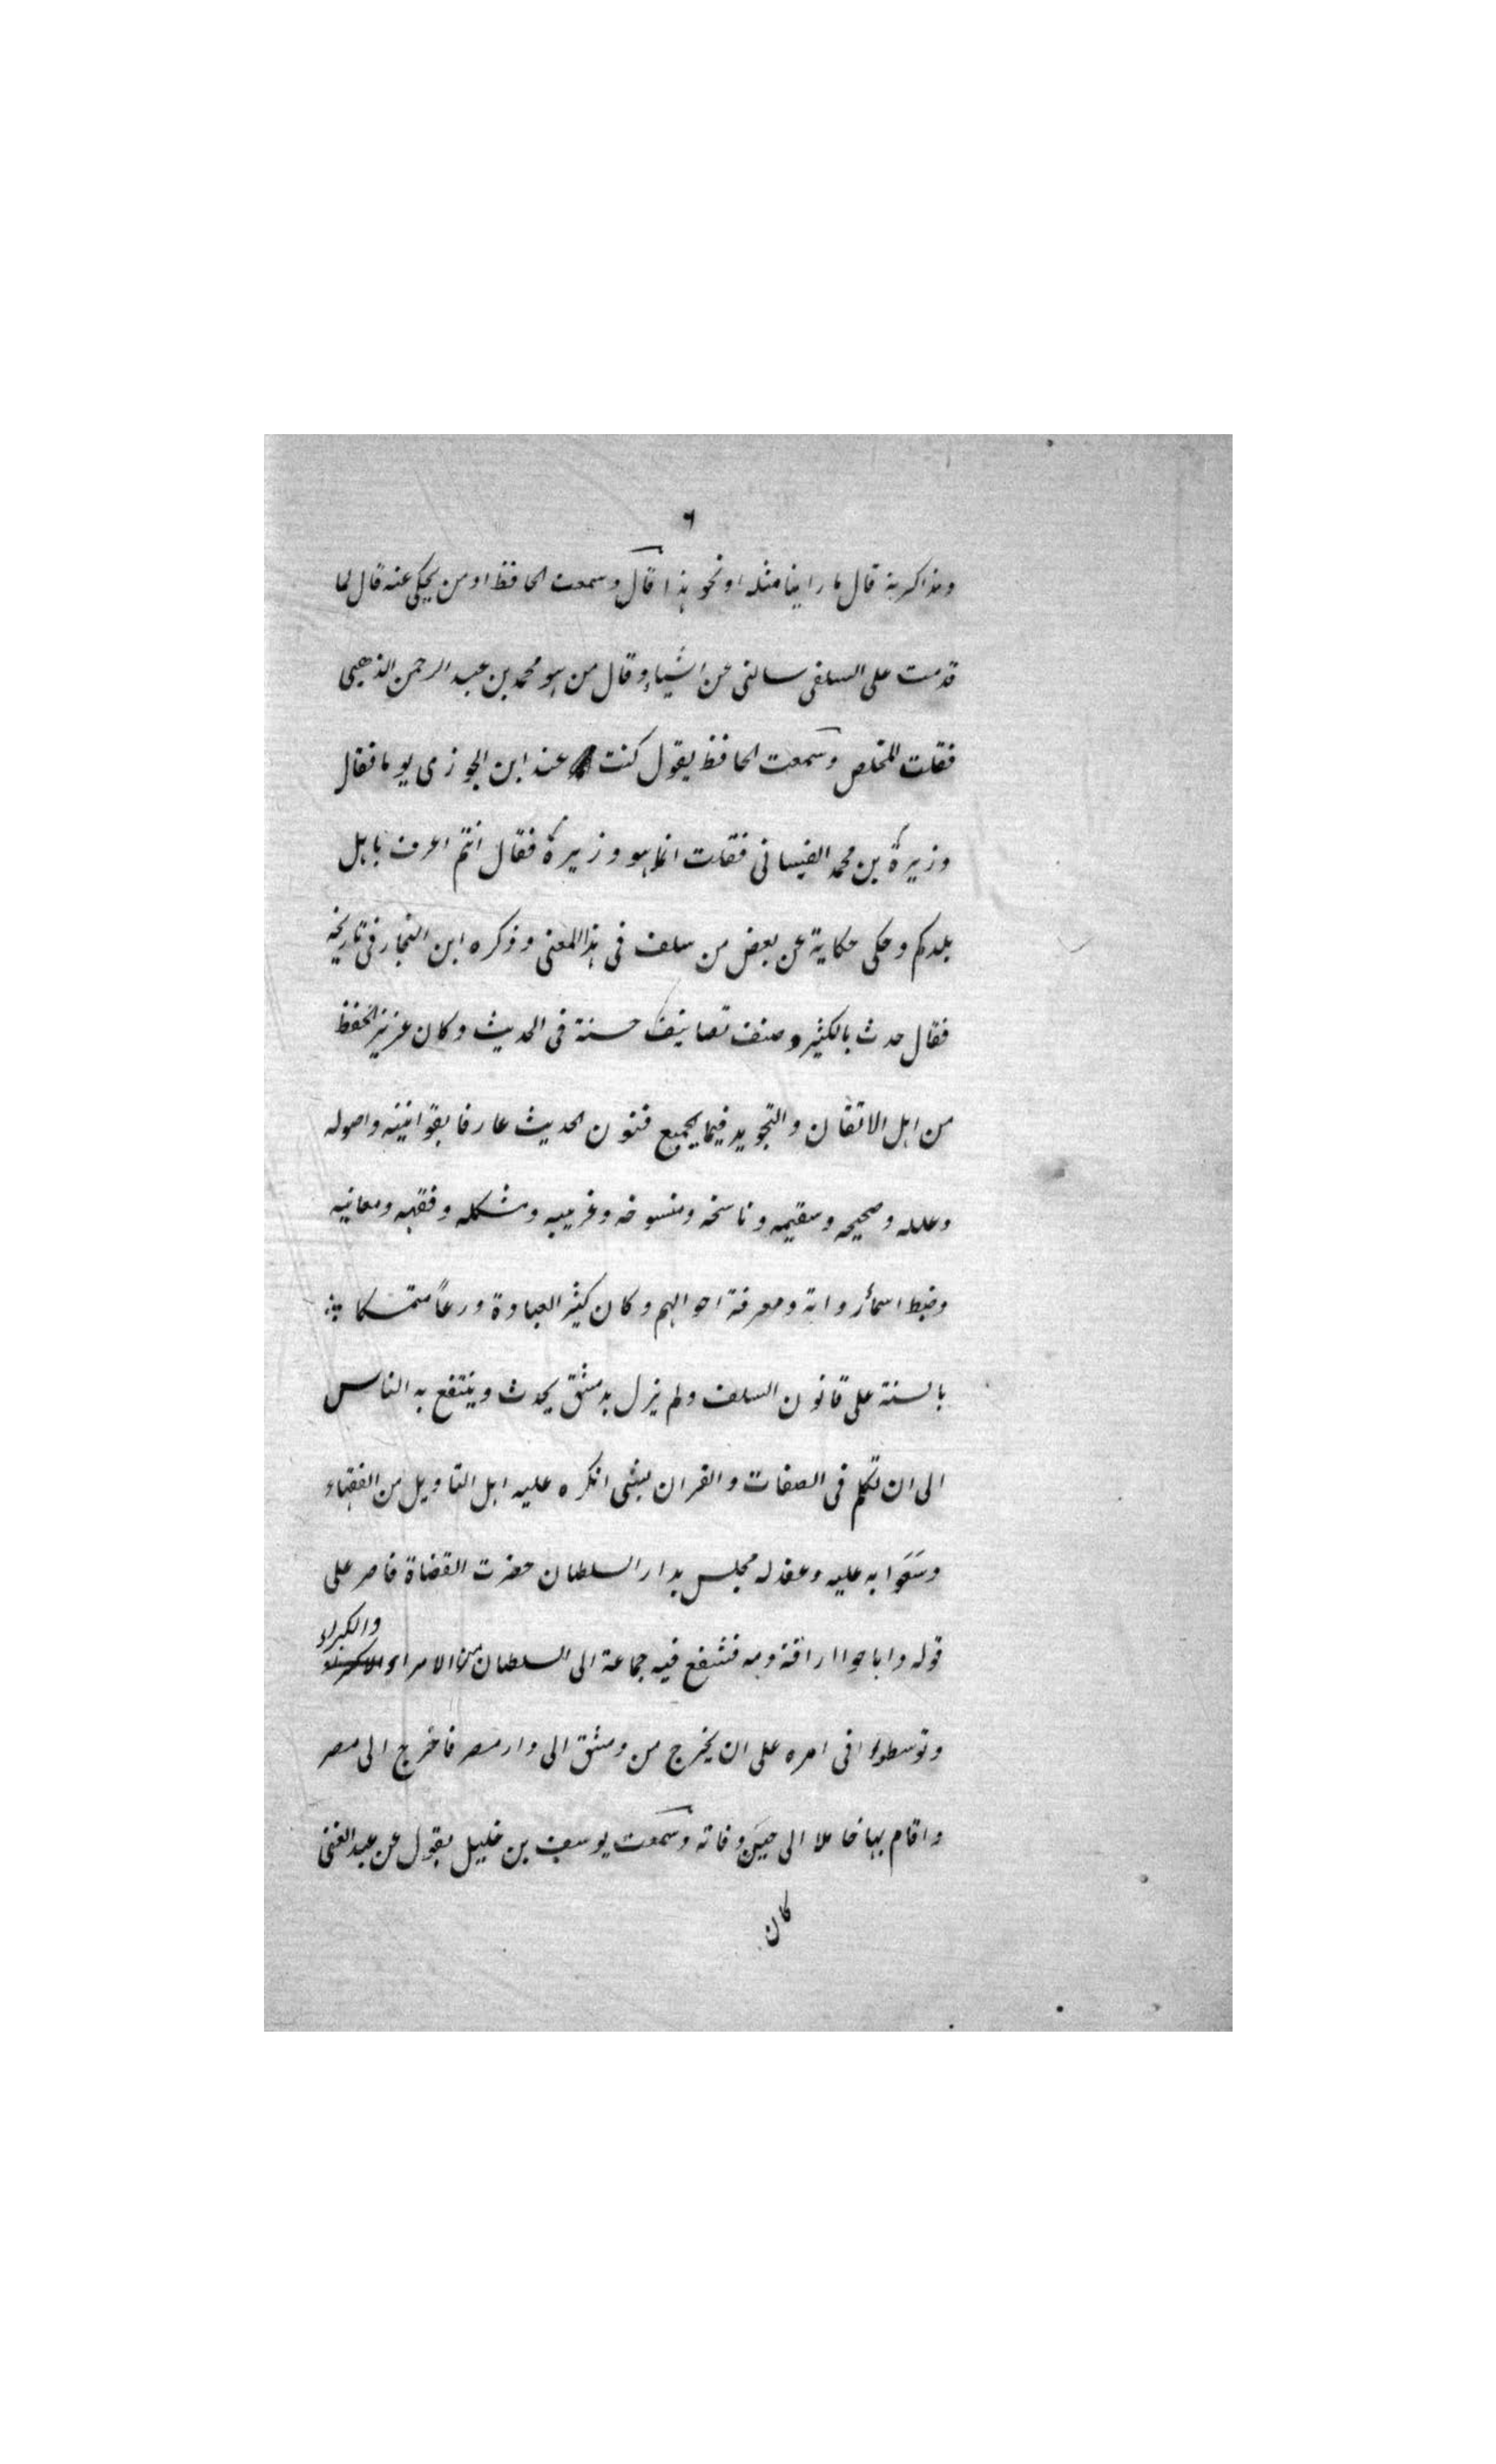 ٦
ومذاكرته قال ما راينا مثله او نحو هذا قال وسمعت الحافظ او من يحكى عنه قال لما
قدمت على السلفى سالنى عن اشياء وقال من هو محمد بن عبد الرحمن الذهبى
فقلت المخلص وسمعت الحافظ يقول كنت عند ابن الجوزى يوما فقال
وزيرة بن محمد الغسانى فقلت انما هو وزيرة فقال انتم اعرف باهل
بلدكم وحكى حكاية عن بعض من سلف فى هذا المعنى وذكره ابن النجار فى تاريخه
فقال حدث بالكثير وصنف تصانيف حسنة فى الحديث وكان عزيز الحفظ
من اهل الاتقان والتجويد فيما يجميع فنون الحديث عارفا بقوانينه واصوله
وعلله وصحيحه وسقيمه وناسخه ومنسوخه وغريبه ومشكله وفقهه ومعانيه
وضبط اسمأ رواته ومعرفة احوالهم وكان كثير العبادة ورعاً متمسكا
بالسنة على قانون السلف ولم يزل بدمشق يحدث وينتفع به الناس
الى ان تكلم فى الصفات والقران بشى انكره عليه اهل التاويل من الفقهاء
وسَعَوا به عليه وعقد له مجلس بدار السلطان حضرت القضاة فاصر على
قوله واباحوا اراقة دمه فشفع فيه جماعة الى السلطان من الامراء والكبراء
وتوسطوا فى امره على ان يخرج من دمشق الى دار مصر فاخرج الى مصر
واقام بها خاملا الى حين وفاته وسمعت يوسف بن خليل يقول عن عبد الغنى
كان